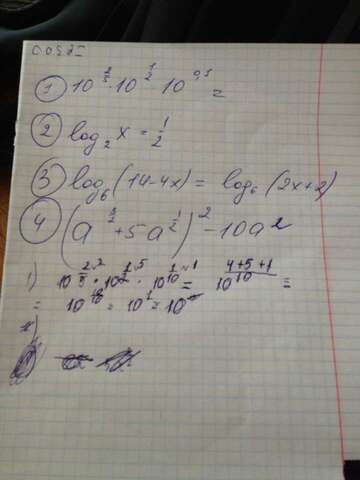 ① 10^(2/5) · 10^(1/2) · 10^(0,1) =
② log₂ x = 1/2
③ log₆ (14-4x) = log₆ (2x+2)
④ (a^(3/2) + 5a^(1/2))² - 10a²
1) 10^(2/5 \2) · 10^(1/2 \5) · 10^(1/10 \1) = 10^((4+5+1)/10) =
= 10^(10/10) = 10¹ = 10